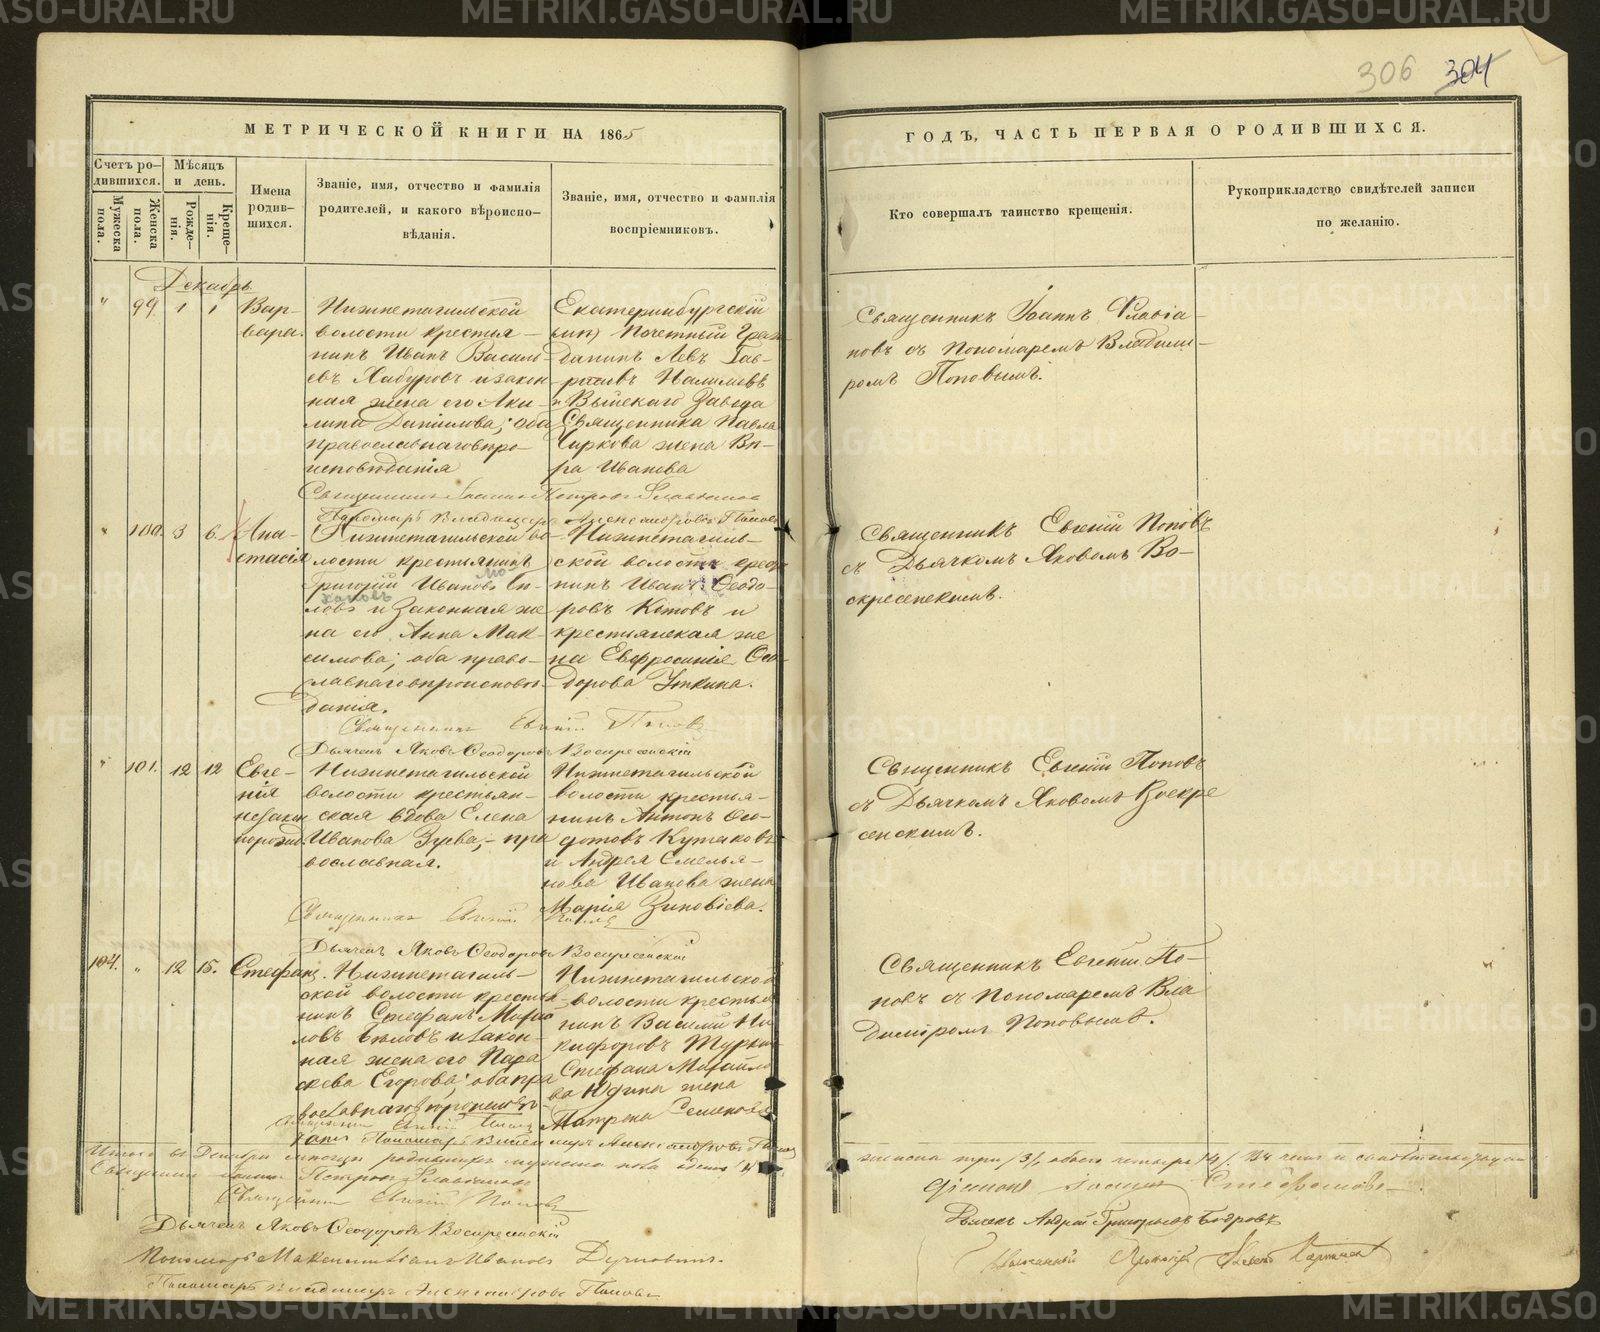 306 304
МЕТРИЧЕСКОЙ КНИГИ НА 1865
ГОДЪ, ЧАСТЬ ПЕРВАЯ О РОДИВШИХСЯ.
Счетъ ро-
дившихся.
Мужеска
пола.
Женска
пола.
Мѣсяцъ
и день.
Рожде-
нія.
Креще-
нія.
Имена
родив-
шихся.
Званіе, имя, отчество и фамилія
родителей, и какого вѣроиспо-
вѣданія.
Званіе, имя, отчество и фамилія
воспріемниковъ.
Кто совершалъ таинство крещенія.
Рукоприкладство свидѣтелей записи
по желанію.
Декабрь
" 99 1 1
Вар-
вара.
Нижнетагильской
волости крестья-
нинъ Иванъ Василь-
евъ Хабуровъ и закон-
ная жена его Аки-
лина Данилова; оба
православнаго
исповѣданія
Екатеринбургскій
Почетный Граж-
данинъ Левъ Гав-
и Выйскаго Завода
Священника Павла
Чиркова жена Вѣ-
ра Иванова
Священникъ Іоаннъ Флавіа-
новъ съ Пономаремъ Владими-
ромъ Поповымъ.
Священникъ Іоаннъ Петровъ Флавіановъ
Пономарь Владимиръ Александровъ Поповъ
" 100. 3 6
Ана-
стасія
Нижнетагильской во-
лости крестьянинъ
Григорій Ивановъ
и законная же-
на его Анна Мак-
симова; оба право-
славнаго вѣроисповѣ-
данія.
Нижнетагиль-
ской волости кресть
нинъ Иванъ Ѳеодо-
ровъ Котовъ и
крестьянская же
на Евфросинія Ѳео-
дорова Уткина.
Священникъ Евгеній Поповъ
съ Дьячкомъ Яковомъ Во-
скресенскимъ.
Священникъ Евгеній Поповъ
Дьячекъ Яковъ Ѳеодоровъ Воскресенскій
" 101. 12 12
Евге-
нія
незакон
норожд.
Нижнетагильской
волости крестьян-
ская вдова Елена
Иванова Зуева,- пра
вославная.
Нижнетагильской
волости крестья-
нинъ Антонъ Ѳео-
дотовъ Кутаковъ
и Андрея Емелья-
нова Иванова жена
Марія Зиновіева.
Священникъ Евгеній Поповъ
съ Дьячкомъ Яковомъ Воскре
сенскимъ.
Священникъ Евгеній Поповъ
Дьячекъ Яковъ Ѳеодоровъ Воскресенскій
104. " 12 15.
Стефанъ.
Нижнетагиль-
ской волости крестья
нинъ Стефанъ Михай
ловъ Бѣловъ и закон-
ная жена его Пара
скева Егорова; оба пра
вославнаго вѣроисповѣ-
Нижнетагильской
волости крестья
нинъ Василій Ни
кифоровъ
Стефана Михайло
ва Юдина жена
Матрена Семенова
Священникъ Евгеній По-
повъ съ Пономаремъ Вла
диміромъ Поповымъ.
Священникъ Евгеній Поповъ
Пономарь Владимиръ Александровъ Поповъ
Итого въ Декабрѣ мѣсяцѣ родившихся мужеска пола одинъ /1/
женска три /3/, обоего четыре /4/.
Священникъ Іоаннъ Петровъ Флавіановъ
Священникъ Евгеній Поповъ
Дьячекъ Яковъ Ѳеодоровъ Воскресенскій
Пономарь Максимиліанъ Ивановъ
Пономарь Владимиръ Александровъ Поповъ
Іоаннъ Стефановъ
Дьячекъ Андрей Григорьевъ Бобровъ
METRIKI.GASO-URAL.RU